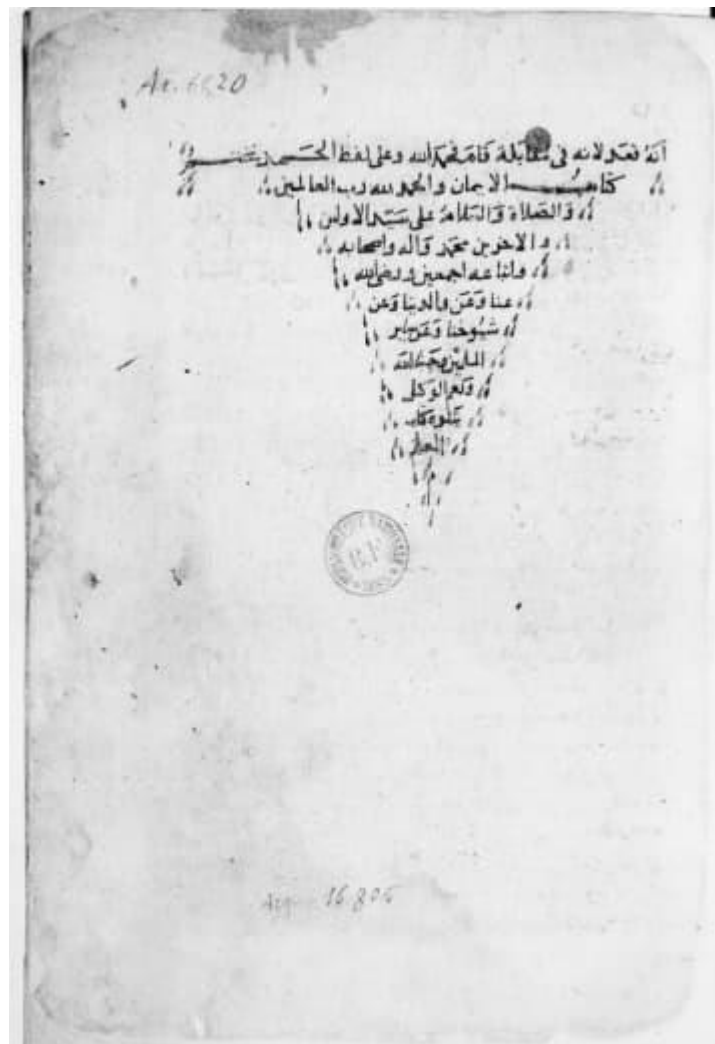 Ar. 6820
انه فعد لانه في مقابلة قام فهد الله وعلى لفظ الحمد نختم
كتاب الايمان والحمد لله رب العالمين
والصلاة والسلام على سيد الاولين
والاخرين محمد واله واصحابه
واتباعه اجمعين ورضي الله
عنا وعن والدينا وعن
شيوخنا وعن ساير
المسلمين حسبنا الله
ونعم الوكيل
يتلوه كتاب
16.806